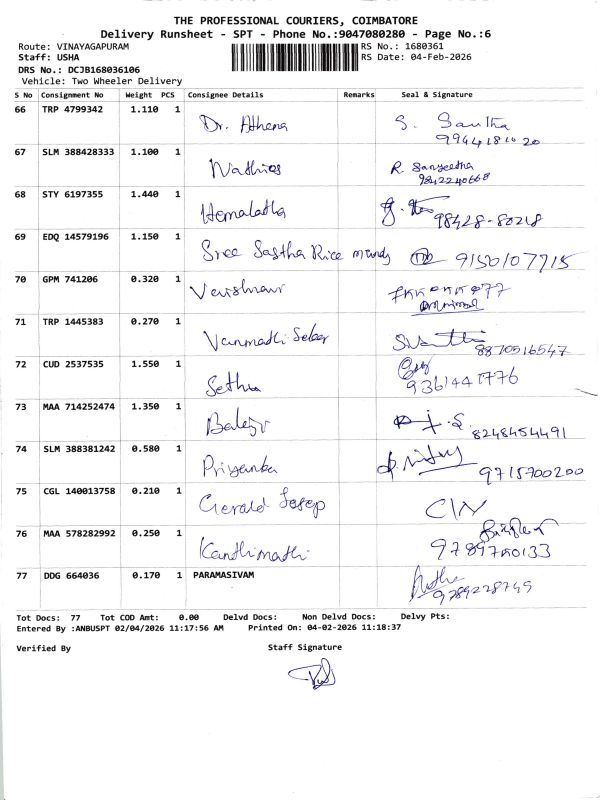 THE PROFESSIONAL COURIERS, COIMBATORE
Delivery Runsheet - SPT - Phone No.:9047080280 - Page No.:6
Route: VINAYAGAPURAM
Staff: USHA
RS No.: 1680361
RS Date: 04-Feb-2026
DRS No.: DCJB168036106
Vehicle: Two Wheeler Delivery
S No Consignment No Weight PCS Consignee Details Remarks Seal & Signature
66 TRP 4799342 1.110 1 Dr. Athena S. Santha
67 SLM 388428333 1.100 1 R. Sangeetha
9842240668
68 STY 6197355 1.440 1 Hemalatha 98428-80218
69 EDQ 14579196 1.150 1 Sree Sastha Rice mundy 9150107715
70 GPM 741206 0.320 1
71 TRP 1445383 0.270 1 Vanmathi
8870516547
72 CUD 2537535 1.550 1
73 MAA 714252474 1.350 1 Balaji
8248454491
74 SLM 388381242 0.580 1 Priyanka
9715700200
75 CGL 140013758 0.210 1 Gerald Josep
76 MAA 578282992 0.250 1 Kanthimathi
77 DDG 664036 0.170 1 PARAMASIVAM
Tot Docs: 77 Tot COD Amt: 0.00 Delvd Docs: Non Delvd Docs: Delvy Pts:
Entered By :ANBUSPT 02/04/2026 11:17:56 AM Printed On: 04-02-2026 11:18:37
Verified By Staff Signature